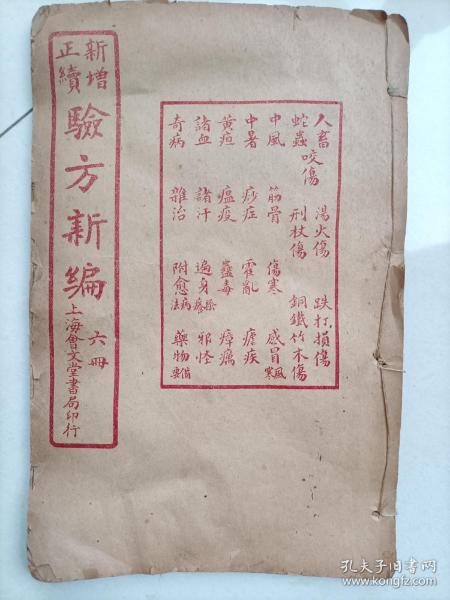 人畜 湯火傷 跌打損傷
蛇蟲 咬傷 刑杖傷 銅鐵竹木傷
中風 筋骨 傷寒 感冒風寒
中暑 痧症 霍亂 瘧疾
黃疸 瘟疫 蠱毒 瘴癘
諸血 諸汗 遍身 邪怪
奇病 雜治 附愈病法 藥物備要
新增
正續
驗方新編
六冊
上海會文堂書局印行
孔夫子旧书网
www.kongfz.com